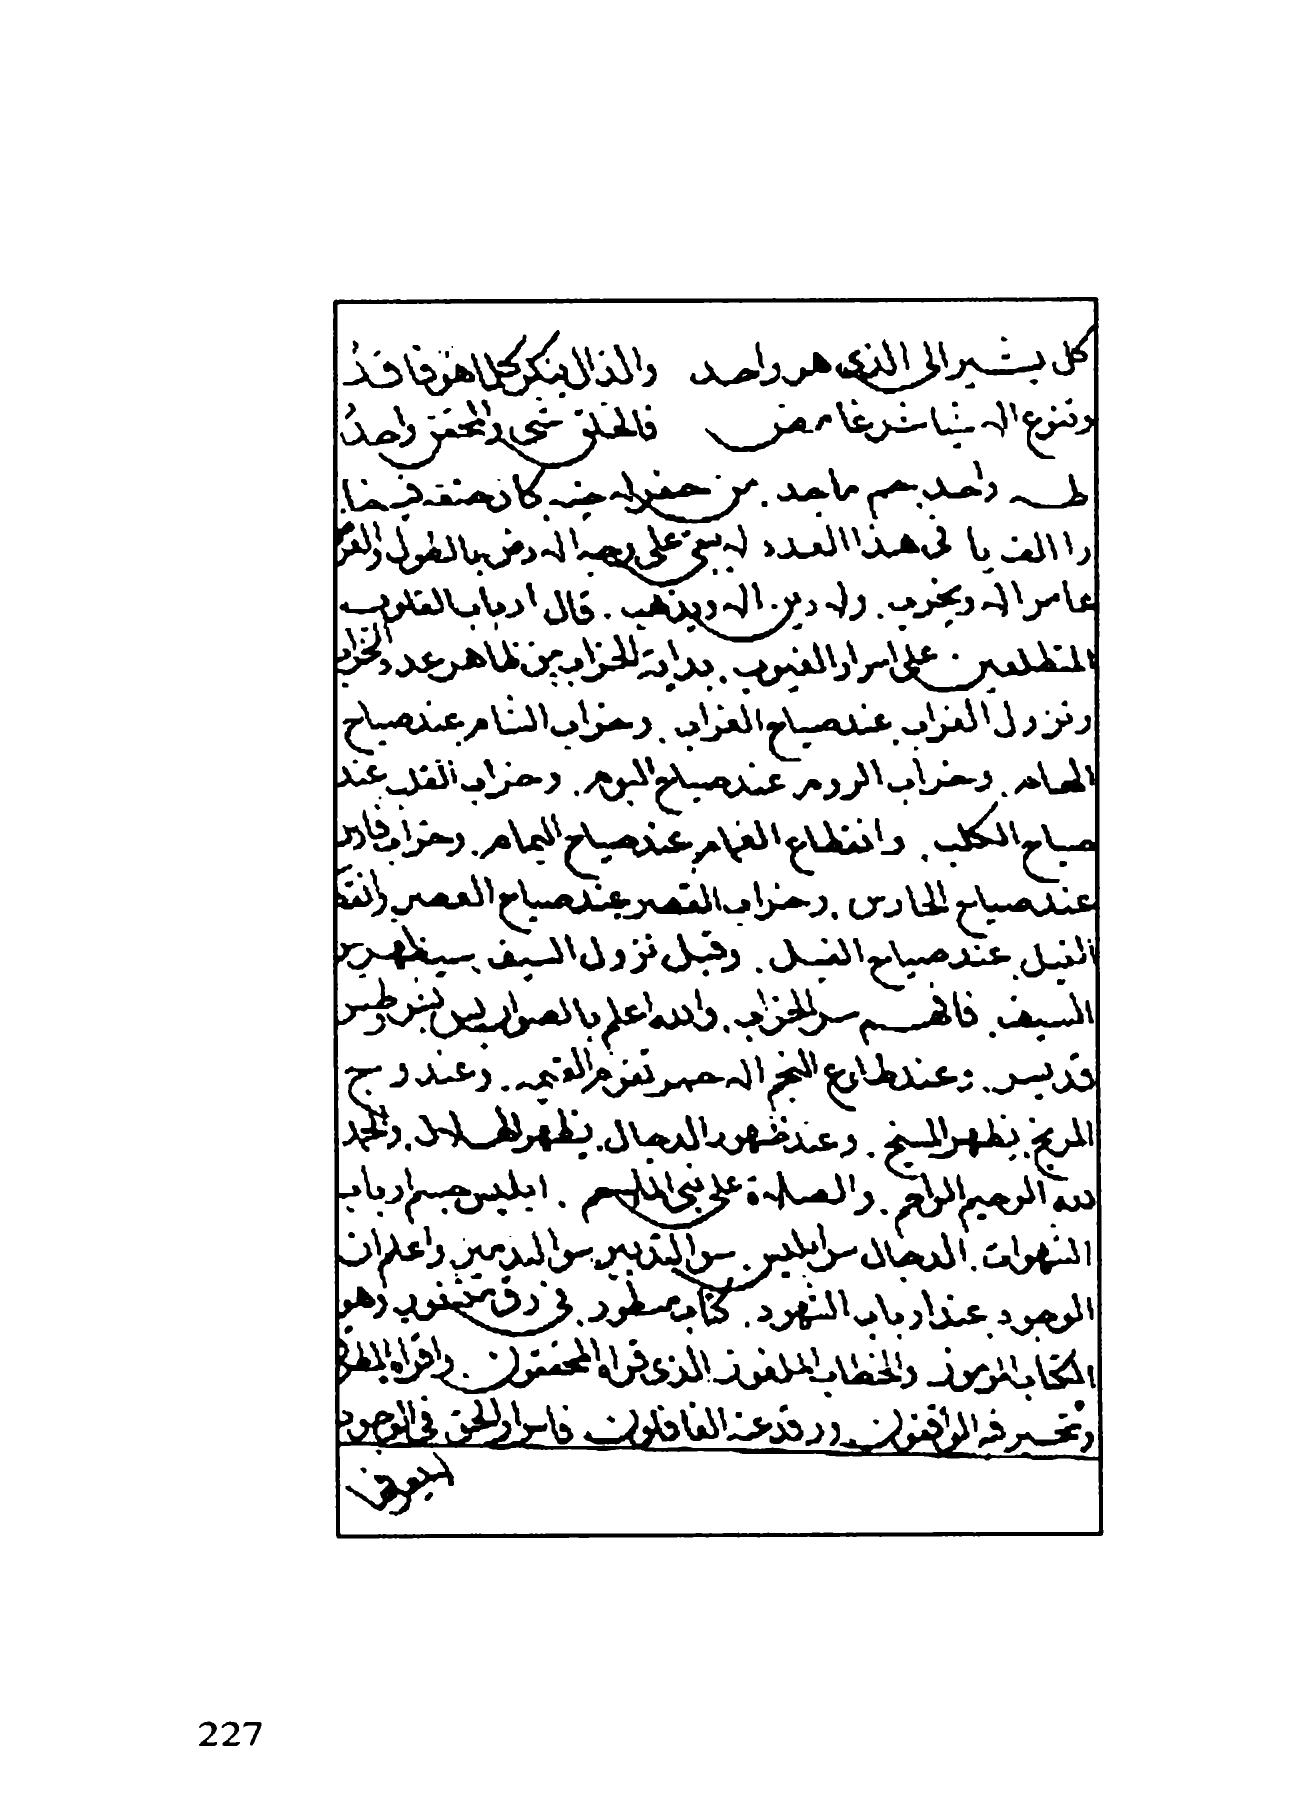 كل يشير الى الذى هو واحد والذال ينكر كلما هو فاقد
وتنوع الـه شيا شر غامض فالخلق شتى والمحقق واحد
واحد بحم ماجد . من حفر له جنبه كان حتفه فى
الف يا فى هذا العدد له يبقى على وجه الـه رض بالطول والعرض
عامر الـه ويخرب . وله دين الـه ويذهب . قال ارباب القلوب
المتطلعين على اسرار الغيوب . بداية الخراب من ظاهر عدد والخراب
ونزول العزاب عند صياح الغراب . وخراب الشام عند صياح
الهام . وخراب الروم عند صياح البوم . وخراب القلب عند
صياح الكلب . وانقطاع الغمام عند صياح اليمام . وخراب فارس
عند صياح الحارس . وخراب القصر عند صياح العصر وانقط
الفيل عند صياح الفيل . وقبل نزول السيف . سيظهر من
السيف . فافهم سر الخراب . والله اعلم بالصواب ليس
قد يسر . وعند طلوع النجم الـه حمر تقوم القيمه . وعند وج
المريخ . يظهر المسيخ . وعند ظهور الدجال . يظهر الهلال . والحمد
لله الرحيم الراحم . والصلـة على نبى الملاحم . ابليس جسم ارباب
الشهوات . الدجال سر ابليس . سر التدبير سر التدمير . واعلم ان
الوجود عند ارباب الشهود . كتاب مسطور . فى رق منشور وهو
الكتاب المرموز والخطاب الملغوز . الذى قراه المحققون . واقراه
وتحير فيه الواقفون . ورقد عنه الغافلون . فاسرار الحق فى الوجود